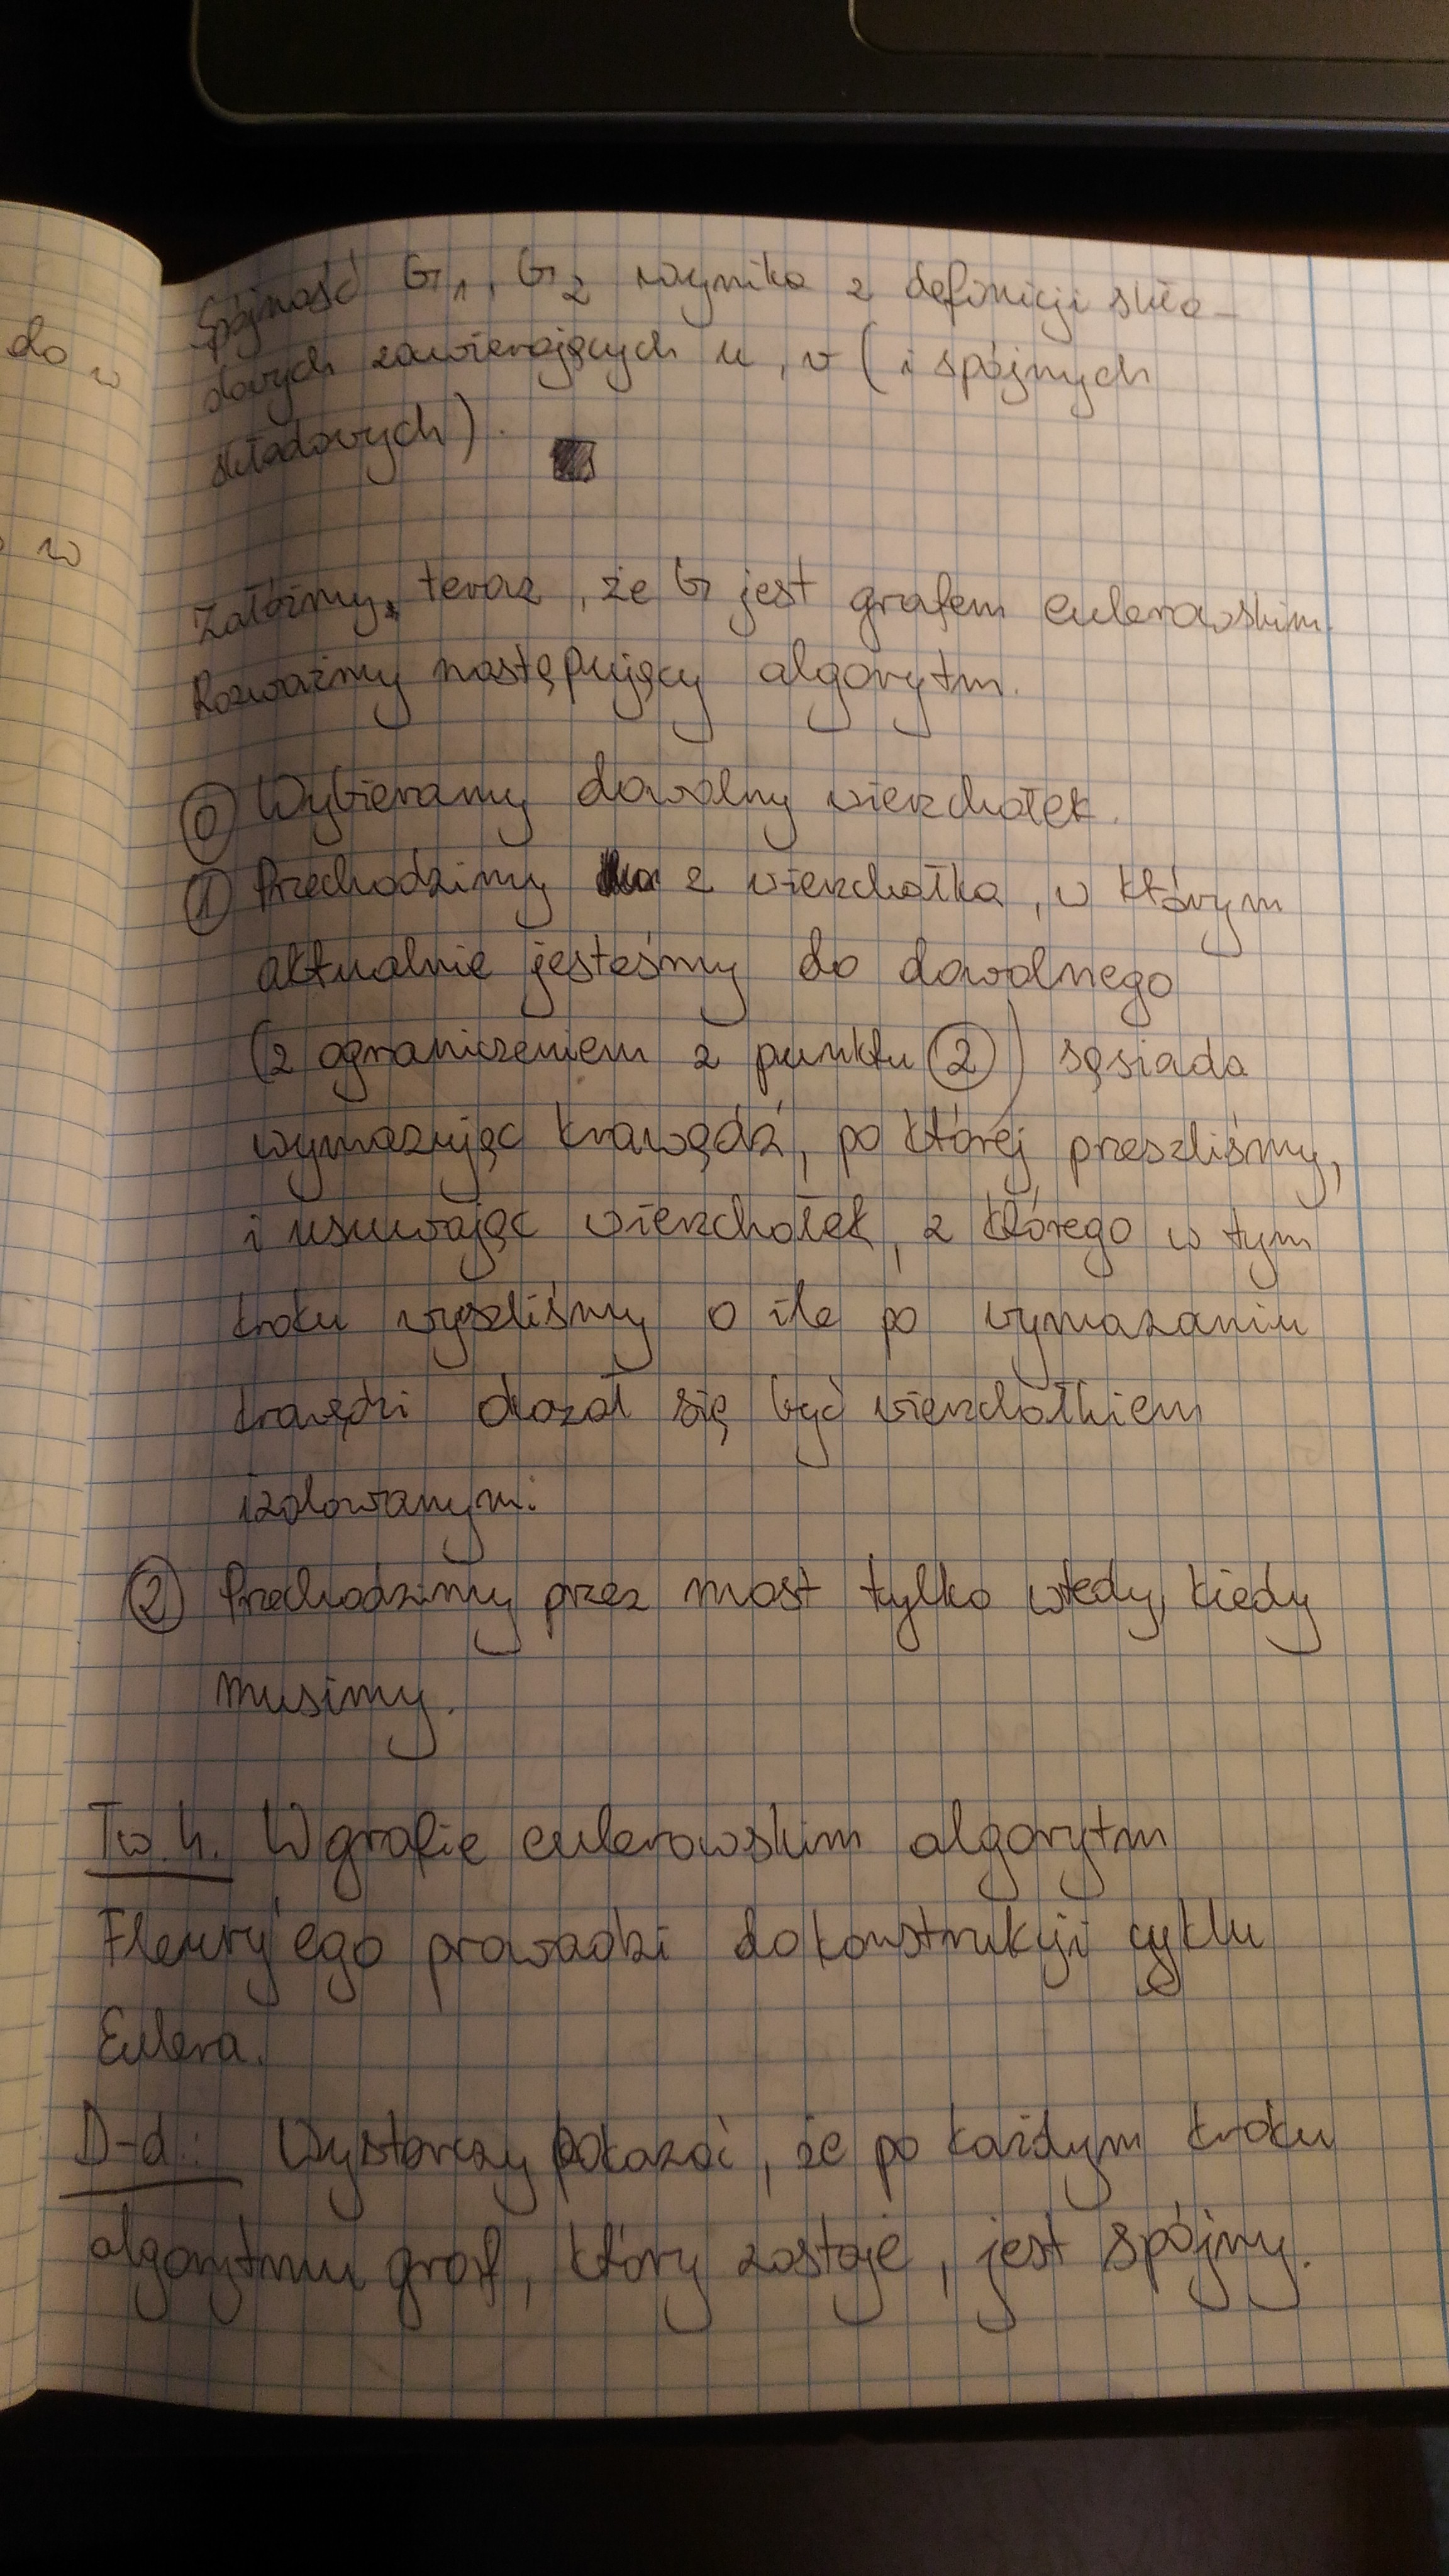 do w
w
Spójność G₁, G₂ wynika z definicji skła-
dowych zawierających u, v (i spójnych
składowych).
Załóżmy, teraz, że G jest grafem eulerowskim.
Rozważmy następujący algorytm.
⓪ Wybieramy dowolny wierzchołek.
① Przechodzimy z wierzchołka, w którym
aktualnie jesteśmy do dowolnego
(z ograniczeniem z punktu ②) sąsiada
wymazując krawędź, po której przeszliśmy,
i usuwając wierzchołek, z którego w tym
kroku wyszliśmy o ile po wymazaniu
krawędzi okazał się być wierzchołkiem
izolowanym.
② Przechodzimy przez most tylko wtedy, kiedy
musimy.
Tw. 4. W grafie eulerowskim algorytm
Fleury'ego prowadzi do konstrukcji cyklu
Eulera.
D-d.: Wystarczy pokazać, że po każdym kroku
algorytmu graf, który zostaje, jest spójny.